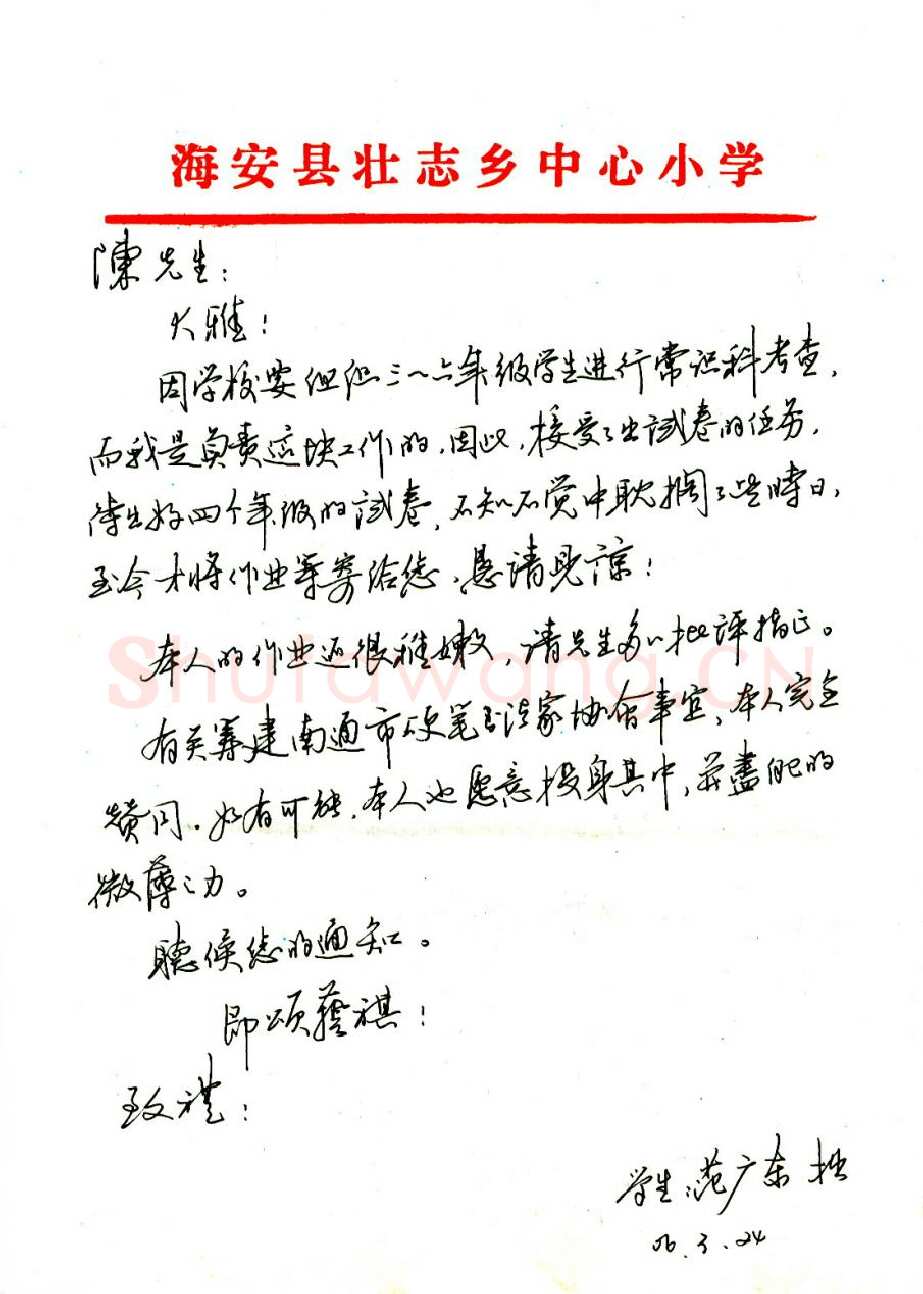 海安县壮志乡中心小学
陳先生：
大雅！
因学校要组织三~六年级学生进行常识科考查，
而我是负责这块工作的，因此，接受了出试卷的任务，
待出好四个年级的试卷，不知不觉中耽搁了些時日，
至今才将作业等寄给您，恳请見谅！
本人的作业还很稚嫩，请先生多以批评指正。
有关筹建南通市硬笔书法家协会事宜，本人完全
赞同。如有可能，本人也愿意投身其中，并盡自己的
微薄之力。
聽候您的通知。
即颂藝祺！
致禮！
学生：范广东拙
06.3.24
ShufaWang.CN